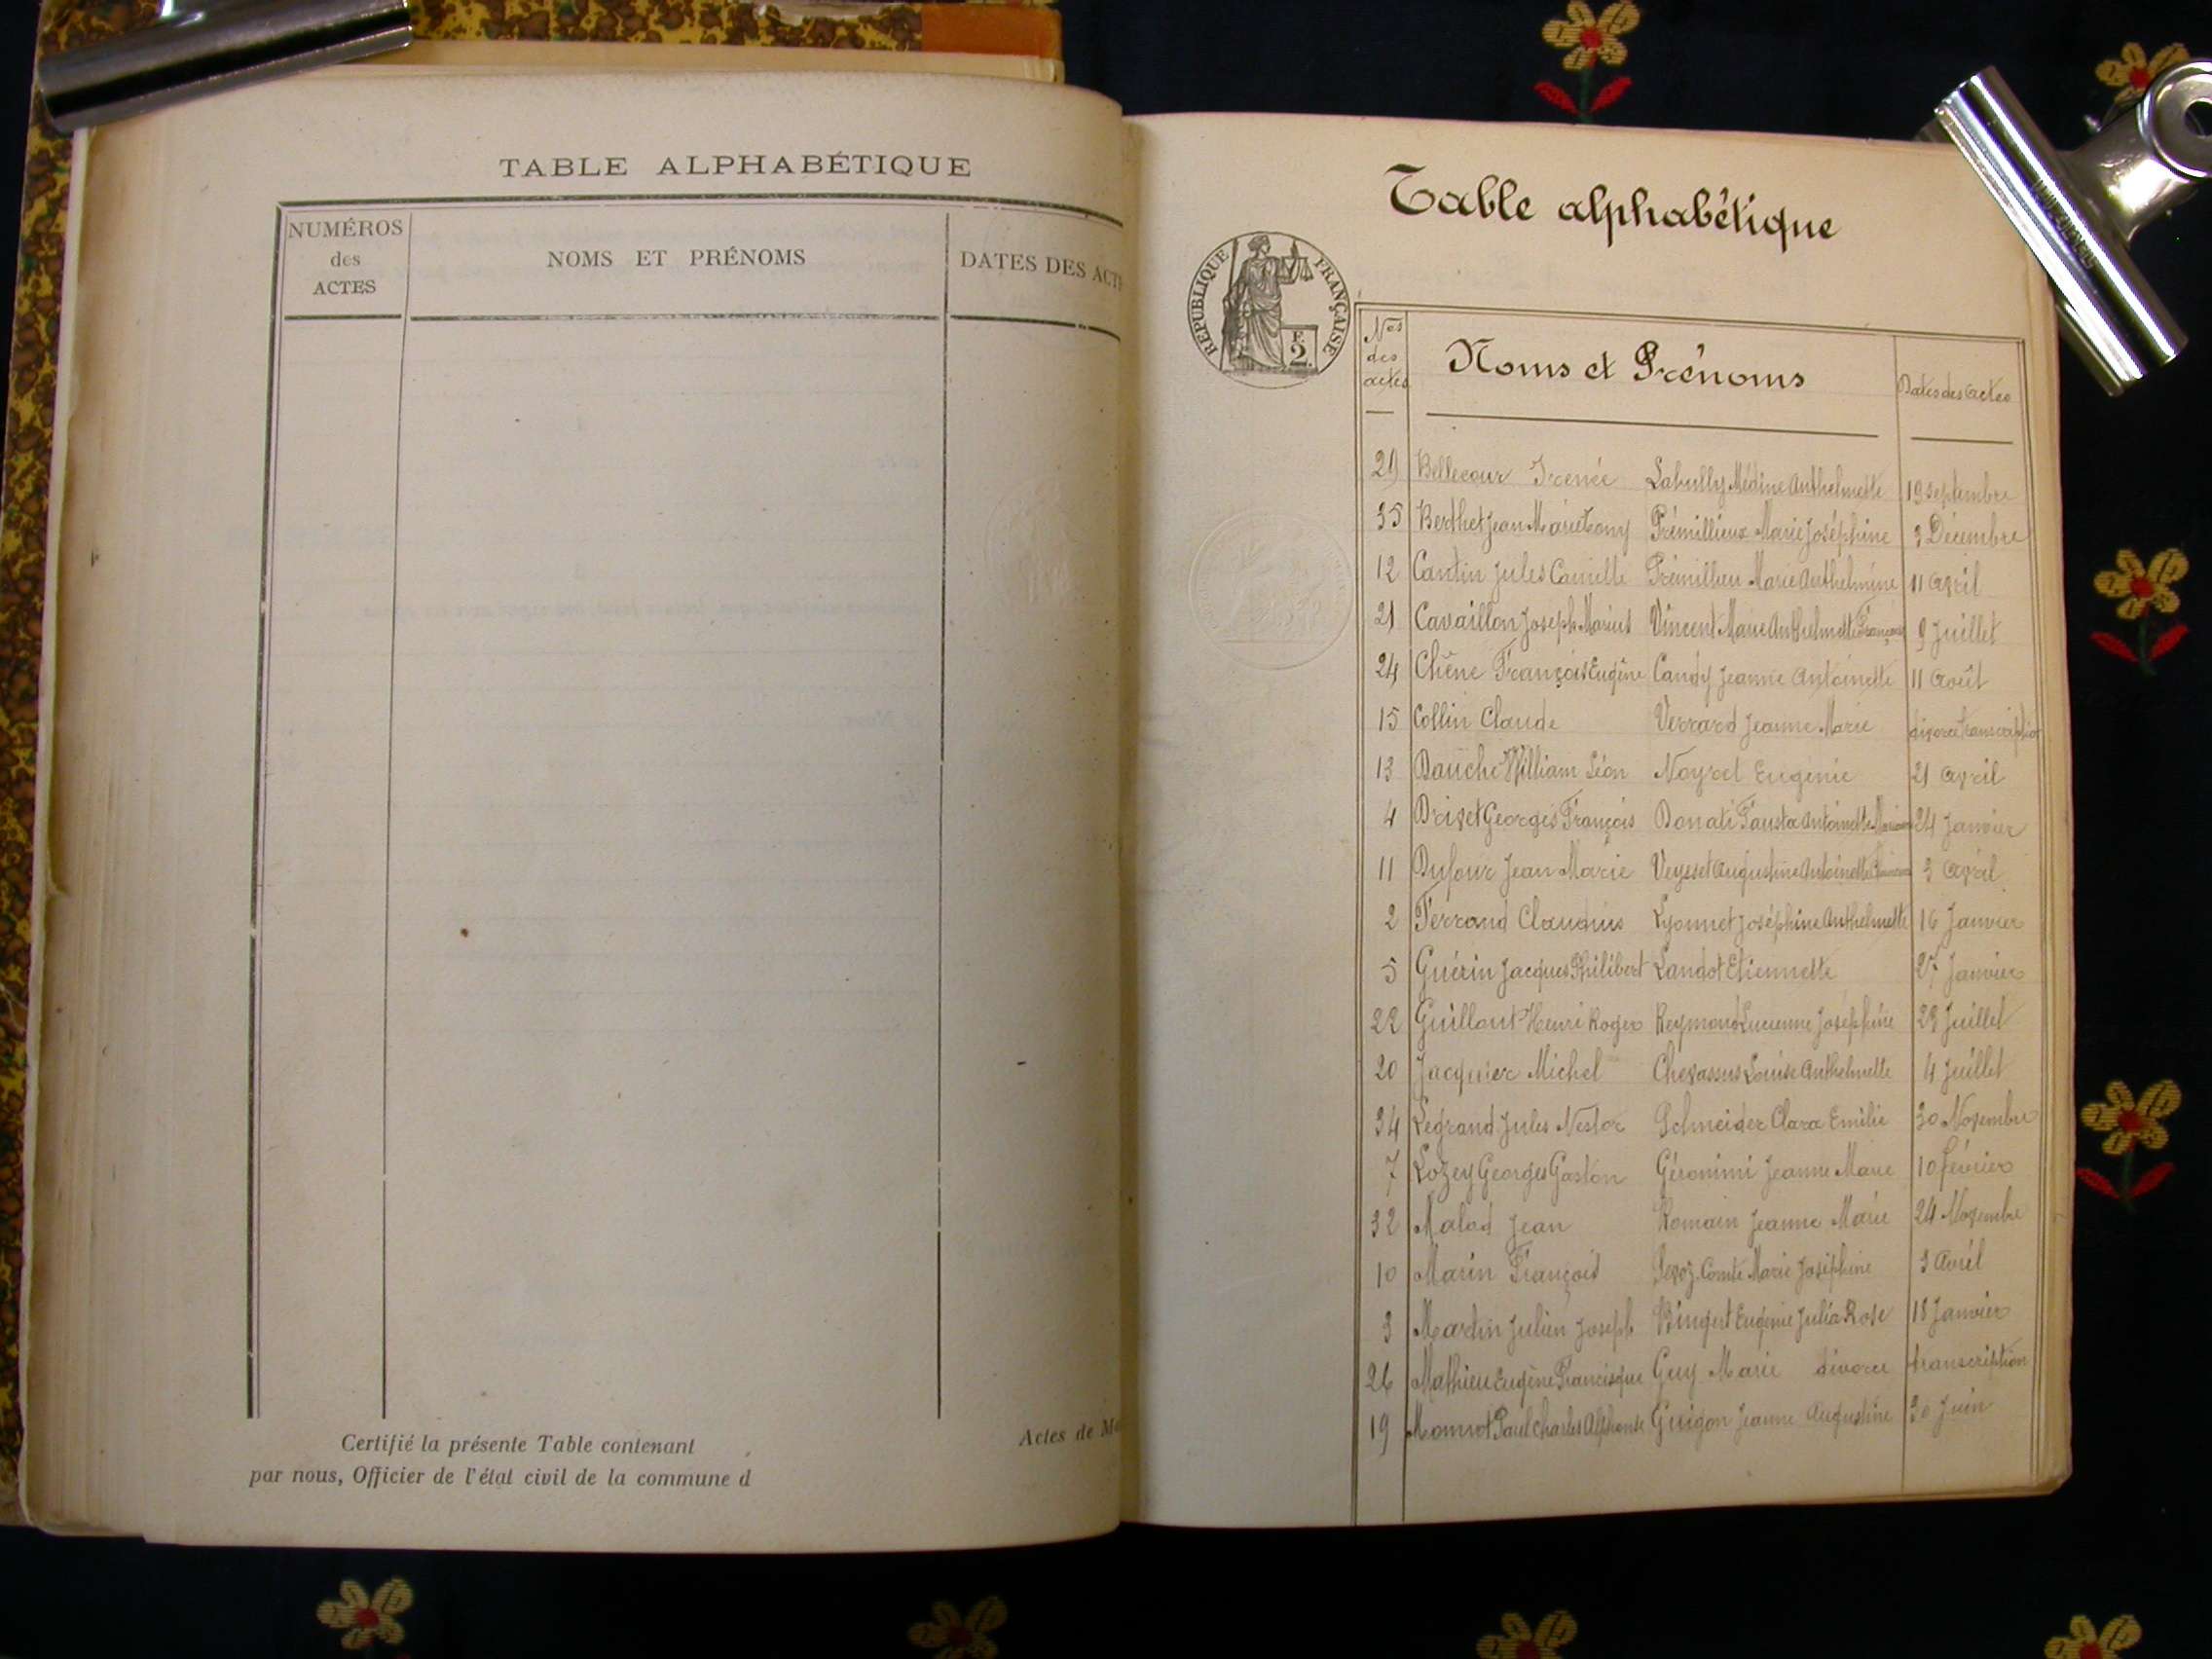 TABLE ALPHABÉTIQUE
NUMÉROS
des
ACTES
NOMS ET PRÉNOMS
DATES DES ACT
Certifié la présente Table contenant
par nous, Officier de l'état civil de la commune d
Actes de M
Table alphabétique
RÉPUBLIQUE FRANÇAISE
2
Nos
des
actes
Noms et Prénoms
Dates des actes
29 Bellecour Irenée Labully Médine Anthelmette 19 septembre
35 Berthet Jean Marie Tony Prémillieux Marie Joséphine 3 Décembre
12 Cantin Jules Camille Prémillieu Marie Anthelmine 11 Avril
21 Cavaillon Joseph Marius Vincent Marie Anthelmette 9 Juillet
24 Chêne François Eugène Candy Jeanne Antoinette 11 Août
15 Collin Claude Verrard Jeanne Marie divorce transcription
13 Bauche William Léon Noyret Eugénie 21 Avril
4 Drivet Georges François Donati Fausta Antoinette 24 Janvier
11 Dufour Jean Marie Veysset Augustine Antoinette 3 Avril
2 Ferrand Claudius Lyonnet Joséphine Anthelmette 16 Janvier
5 Guérin Jacques Philibert Landot Etiennette 27 Janvier
22 Guillont Henri Roger Reymond Lucienne Joséphine 29 Juillet
20 Jacquier Michel Chevassus Louise Anthelmette 4 Juillet
34 Legrand Jules Nestor Schneider Clara Emilie 30 Novembre
7 Lozey Georges Gaston Géronimi Jeanne Marie 10 février
32 Malod Jean Romain Jeanne Marie 24 Novembre
10 Marin François Comte Marie Joséphine 3 Avril
3 Martin Julien Joseph Bingert Eugénie Julia Rose 18 Janvier
26 Mathieu Eugène Francisque Guy Marie divorce transcription
19 Monnot Paul Charles Alphonse Guigon Jeanne Augustine 30 Juin